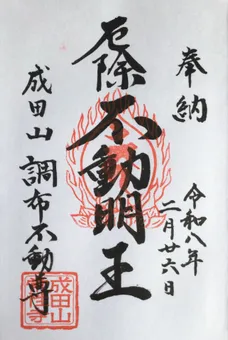 奉納
令和八年
二月廿六日
厄除
不動明王
成田山 調布不動尊
成田山